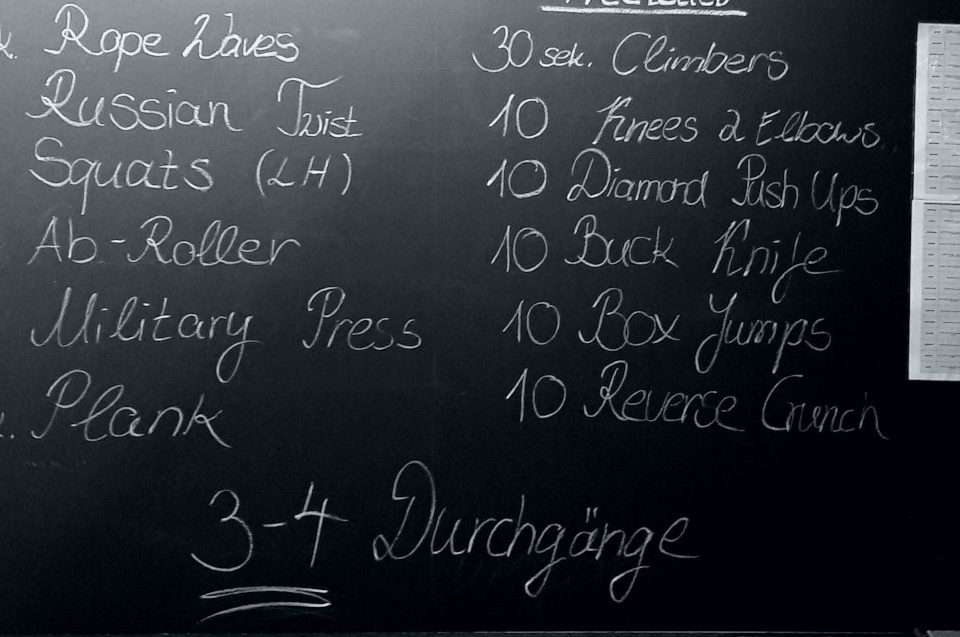 Rope Waves
Russian Twist
Squats (LH)
Ab-Roller
Military Press
Plank
30 sek. Climbers
10 Knees 2 Elbows
10 Diamond Push Ups
10 Buck Knife
10 Box Jumps
10 Reverse Crunch
3-4 Durchgänge